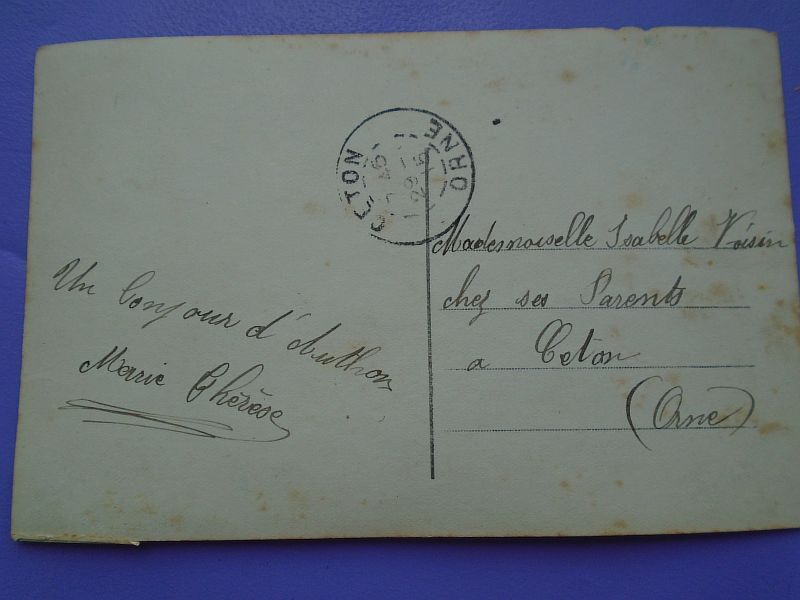 CETON
ORNE
Un bonjour d'Authon
Marie Thérèse
Mademoiselle Isabelle Voisin
chez ses Parents
a Ceton
(Orne)